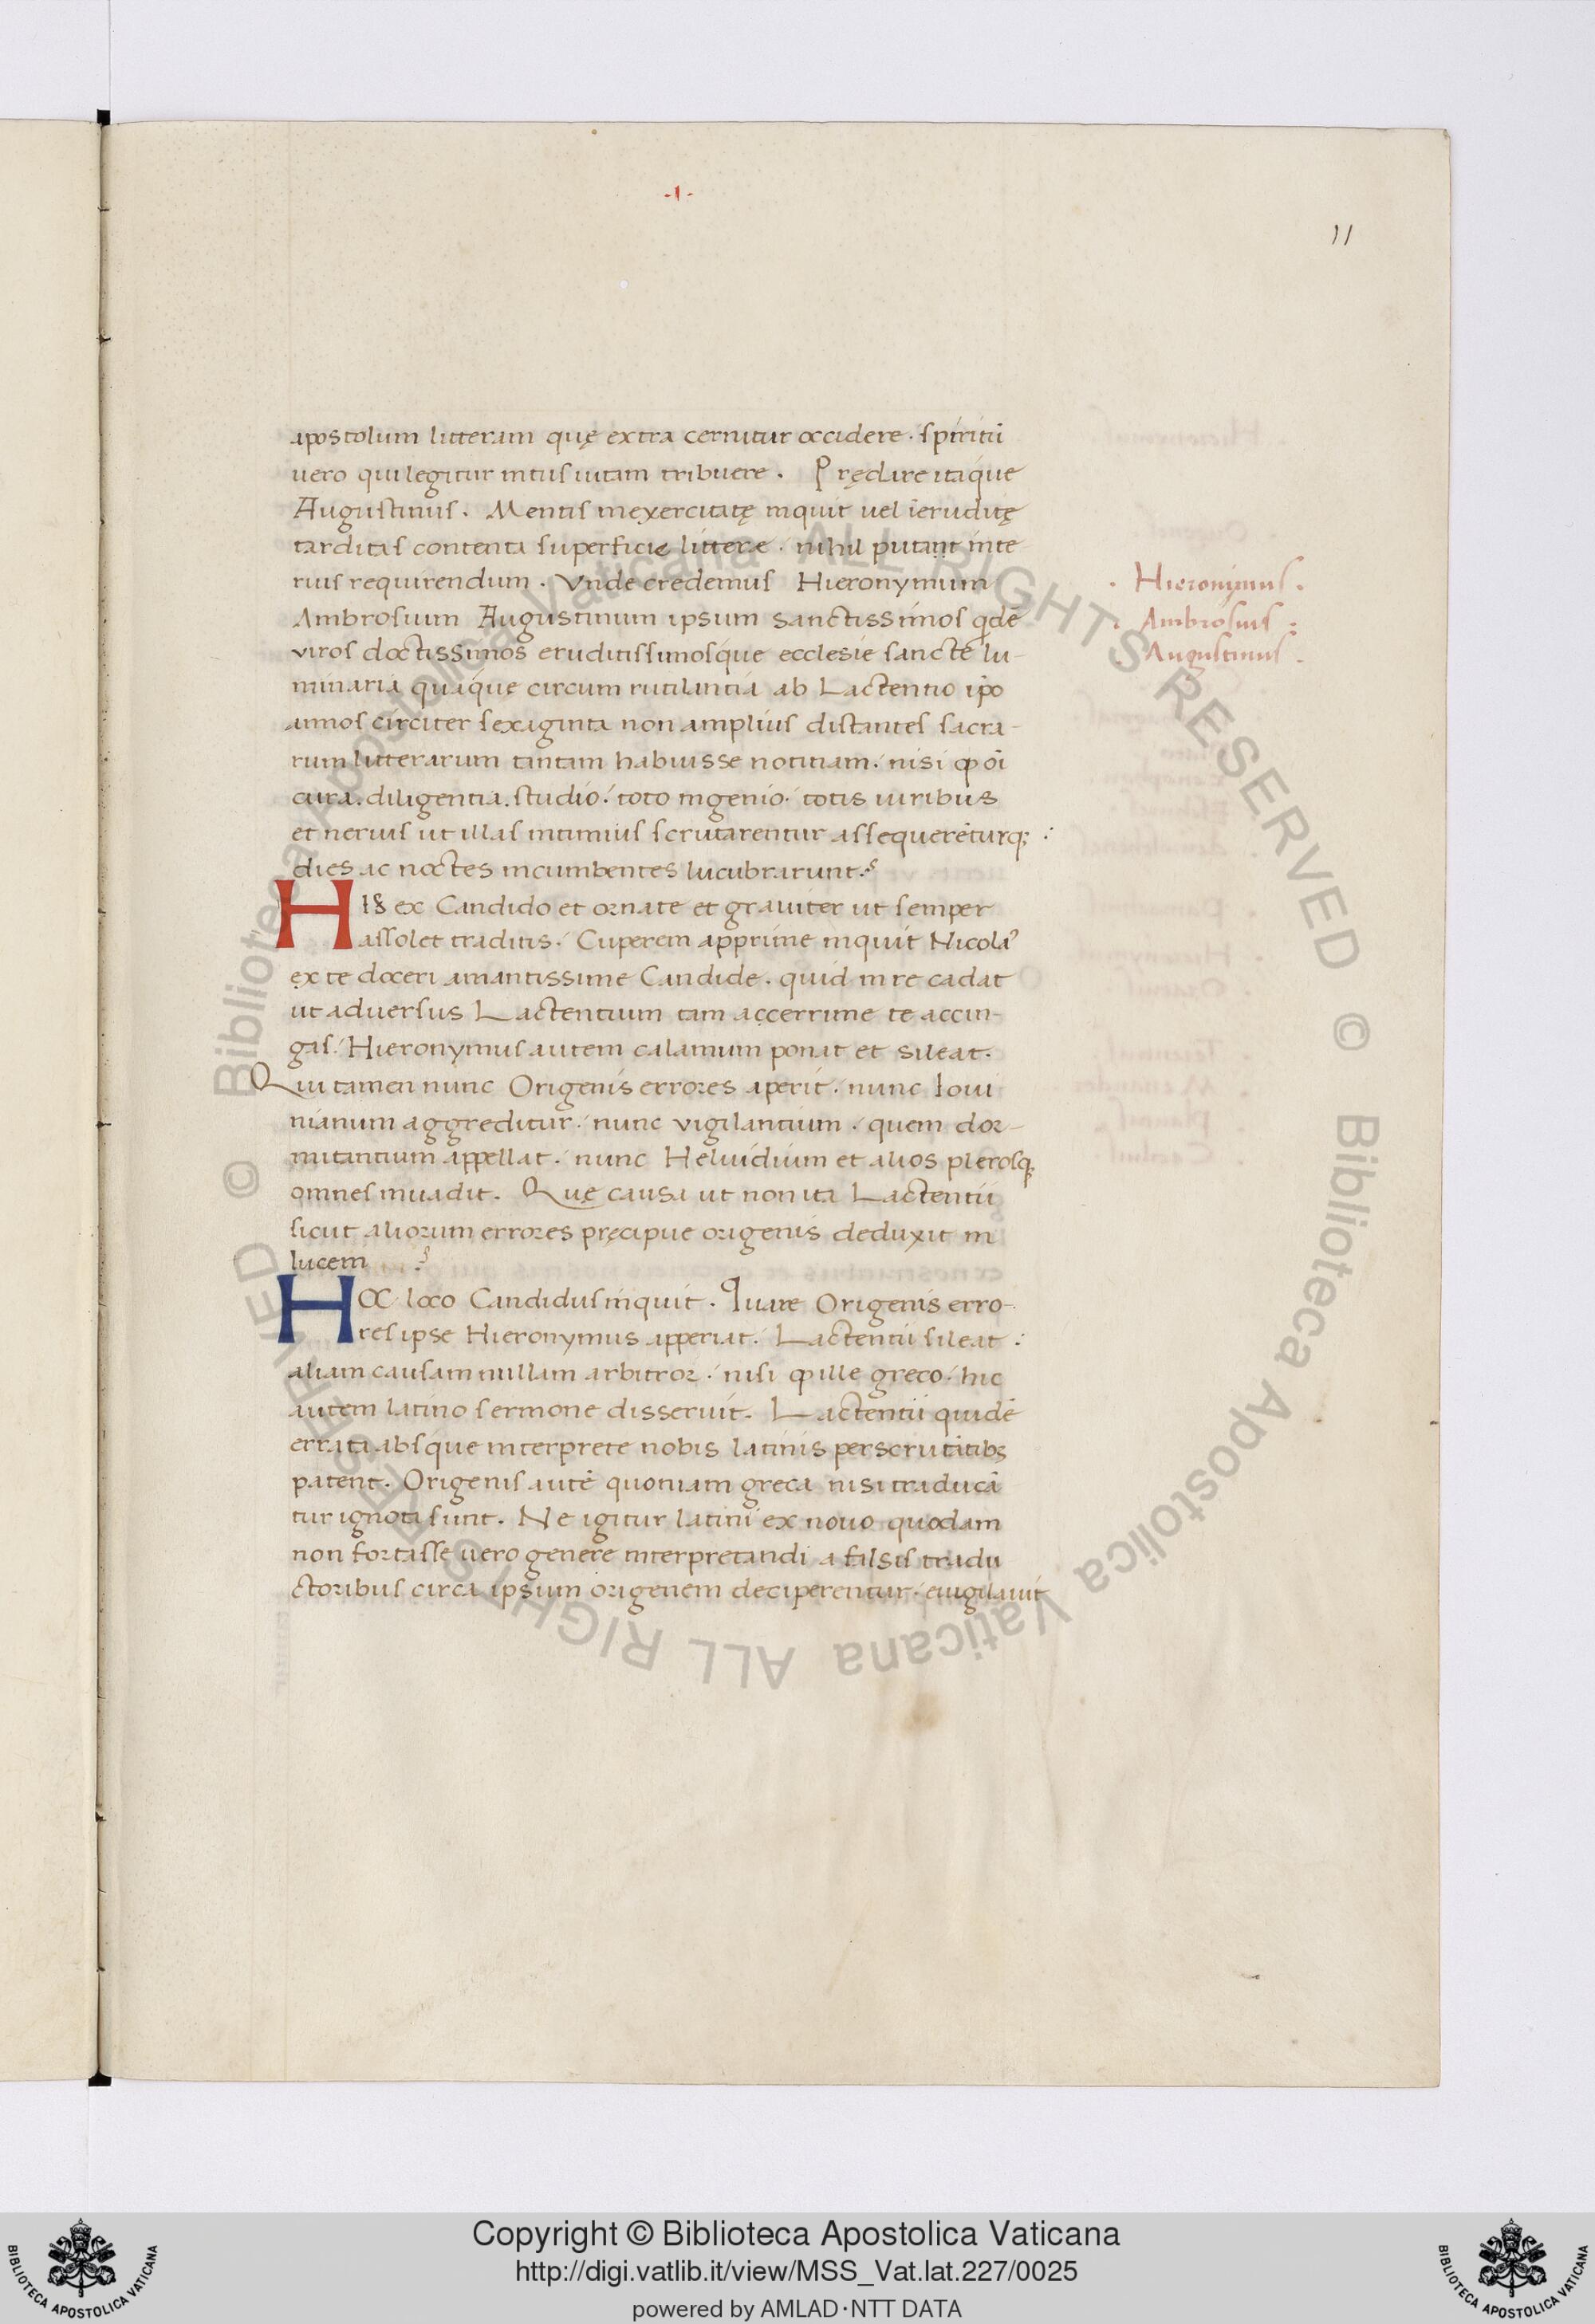 -1-
11
apostolum litteram quę extra cernitur occidere. spiritū
vero qui legitur intus uitam tribuere. Pręclare itaque
Augustinus. Mentis inexercitatę inquit uel ierudite̜
tarditas contenta superficie littere. nihil putant inte
rius requirendum. Vnde credemus Hieronymum
Ambrosium Augustinum ipsum sanctissimos qdē
viros doctissimos eruditissimosque ecclesie sancte lu-
minaria quaque circum rutilantia ab Lactentio ipo
annos circiter sexaginta non amplius distantes sacra-
rum litterarum tantam habuisse notitiam. nisi ꝙ oī
cura. diligentia. studio. toto ingenio. totis uiribus
et neruis ut illas intimius scrutarentur assequerēturq;
dies ac noctes incumbentes lucubrarunt.
HIs ex Candido et ornate et grauiter ut semper
assolet traditis. Cuperem apprime inquit Nicola⁹
ex te doceri amantissime Candide. quid in re cadat
ut aduersus Lactentium tam accerrime te accin-
gas. Hieronymus autem calamum ponat et sileat.
Qui tamen nunc Origenis errores aperit. nunc Ioui
nianum aggreditur. nunc vigilantium. quem dor-
mitantium appellat. nunc Heluidium et alios plerosq;
omnes inuadit. Quę causa ut non ita Lactentii
sicut aliorum errores pręcipue origenis deduxit in
lucem
HOC loco Candidus inquit. Quare Origenis erro-
res ipse Hieronymus apperiat. Lactentii sileat:
aliam causam nullam arbitror. nisi ꝙ ille greco. hic
autem latino sermone disseruit. Lactentii quidē
errata absque interprete nobis latinis perscrutātibꝫ
patent. Origenis autē quoniam greca nisi traducā
tur ignota sunt. Ne igitur latini ex nouo quodam
non fortasse uero genere interpretandi a falsis tradu
ctoribus circa ipsum origenem deciperentur. euigilauit
. Hieronimus.
. Ambrosius:
. Augustinus.
© Biblioteca Apostolica Vaticana ALL RIGHTS RESERVED © Biblioteca Apostolica Vaticana ALL RIGHTS RESERVED
Copyright © Biblioteca Apostolica Vaticana
http://digi.vatlib.it/view/MSS_Vat.lat.227/0025
powered by AMLAD·NTT DATA
BIBLIOTECA APOSTOLICA VATICANA
BIBLIOTECA APOSTOLICA VATICANA